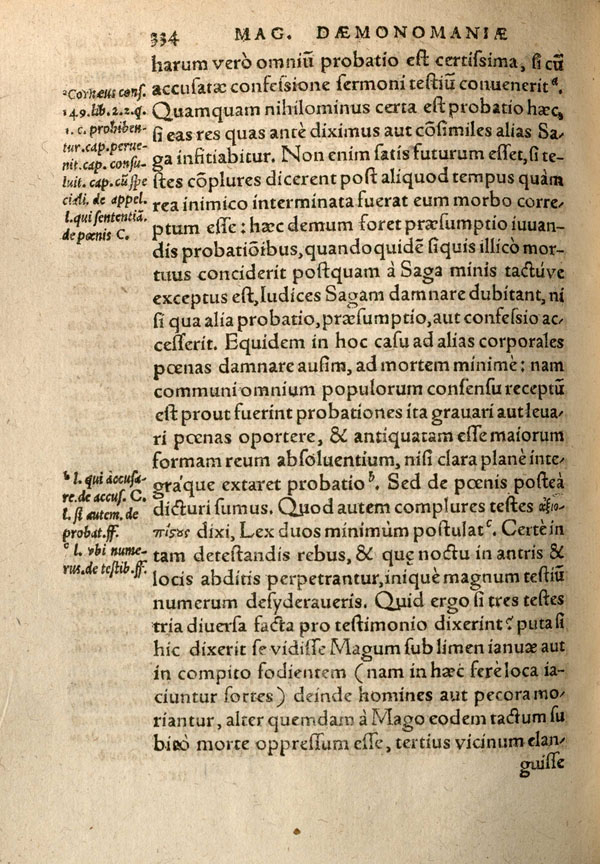 334 MAG. DÆMONOMANIÆ
harum verò omniũ probatio est certissima, si cũ
accusatæ confessione sermoni testiũ conuenerit ᵃ.
Quamquam nihilominus certa est probatio hæc,
si eas res quas antè diximus aut cõsimiles alias Sa-
ga infitiabitur. Non enim satis futurum esset, si te-
stes cõplures dicerent post aliquod tempus quàm
rea inimico interminata fuerat eum morbo corre-
ptum esse: hæc demum foret præsumptio iuuan-
dis probatiõibus, quando quidẽ si quis illicò mor-
tuus conciderit postquam à Saga minis tactúve
exceptus est, Iudices Sagam damnare dubitant, ni
si qua alia probatio, præsumptio, aut confessio ac-
cesserit. Equidem in hoc casu ad alias corporales
pœnas damnare ausim, ad mortem minimè: nam
communi omnium populorum consensu receptũ
est prout fuerint probationes ita grauari aut leua-
ri pœnas oportere, & antiquatam esse maiorum
formam reum absoluentium, nisi clara planè inte-
gráque extaret probatio ᵇ. Sed de pœnis posteà
dicturi sumus. Quod autem complures testes ἀξιο-
πίςους dixi, Lex duos minimùm postulat ᶜ. Certè in
tam detestandis rebus, & quę noctu in antris &
locis abditis perpetrantur, iniquè magnum testiũ
numerum desyderaueris. Quid ergo si tres testes
tria diuersa facta pro testimonio dixerint? puta si
hic dixerit se vidisse Magum sub limen ianuæ aut
in compito fodientem (nam in hæc ferè loca ia-
ciuntur sortes) deinde homines aut pecora mo-
riantur, alter quemdam à Mago eodem tactum su
bitò morte oppressum esse, tertius vicinum elan-
guisse
ᵃ Corneus cons.
149. lib. 2. 2. q.
1. c. prohiben-
tur. cap. perue-
nit. cap. consu-
luit. cap. cũ spe
ciali. de appel.
l. qui sententiã.
de pœnis C.
ᵇ l. qui accusa-
re. de accus. C.
l. si autem. de
probat. ff.
ᶜ l. vbi nume-
rus. de testib. ff.